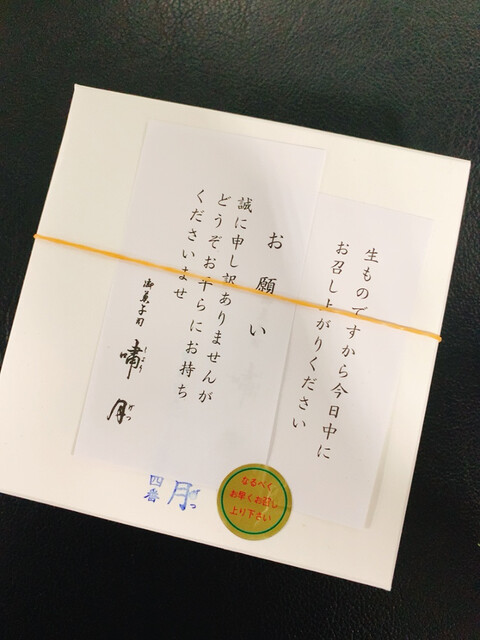 生ものですから今日中に
お召し上がりください
お願い
誠に申し訳ありませんが
どうぞお平らにお持ち
くださいませ
御菓子司
嘯月
しょう
げつ
なるべく
お早くお召し
上り下さい
四番
月